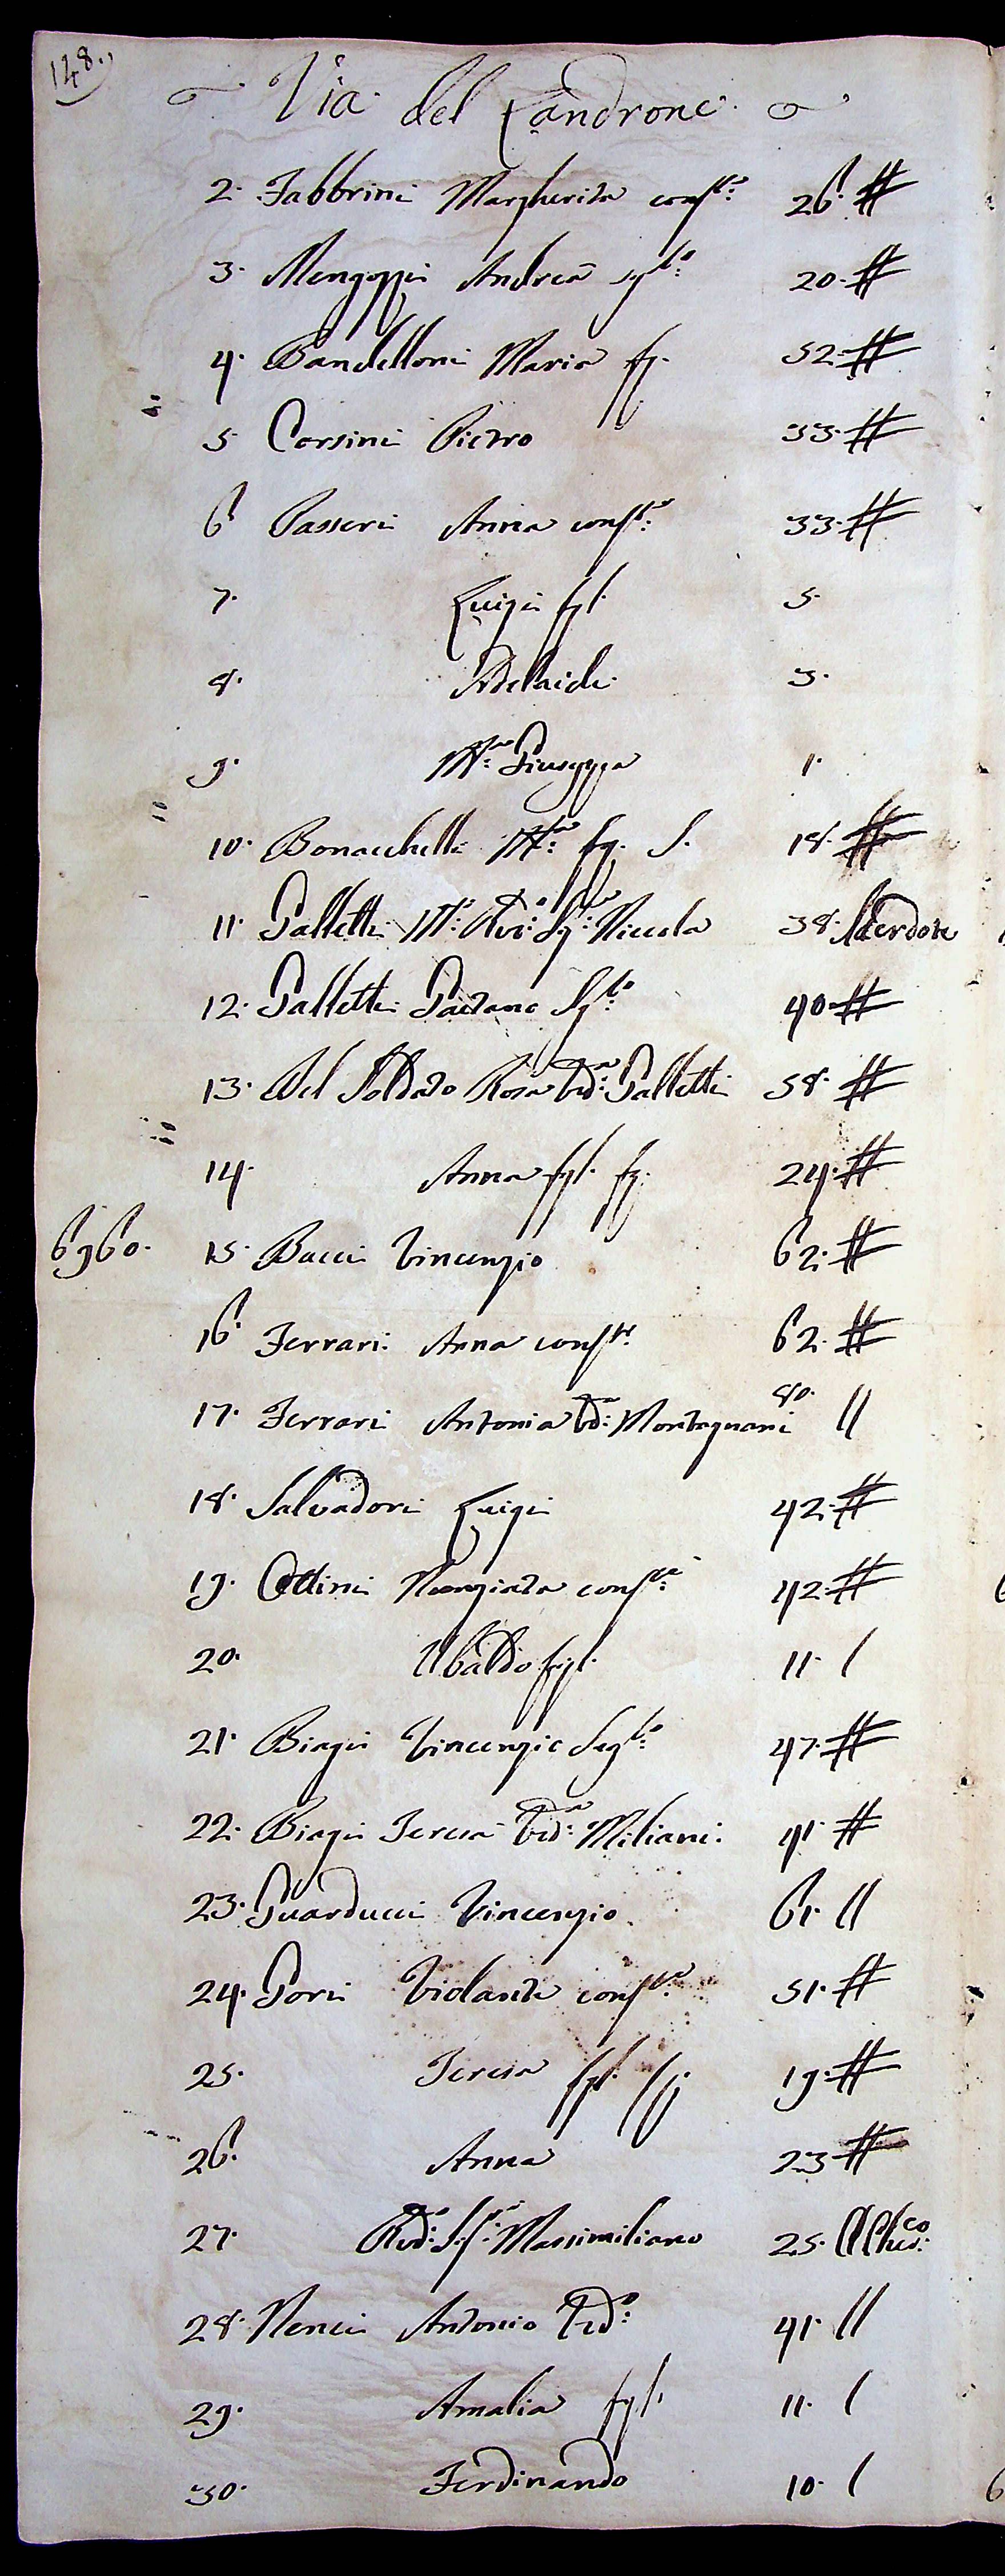 148.
Via del Landrone
2. Fabbrini Margherita conste: 26. #
3. Mengozzi Andrea sglo: 20. #
4. Bandelloni Maria fz. 52. #
5. Corsini Pietro 33. #
6. Passeri Anna conste: 33. #
7. Luigi fgl. 5.
8. Adelaide 3.
9. Ma: Giuseppa 1.
10. Bonacchelli Ma: fz. S. 18. #
11. Galletti Mo: Niccola 38. Sacerdote
12. Galletti Gaetano Sglo: 40. #
13. Del Soldato Rosa Vda: Galletti 58. #
14. Anna fgl. fz. 24. #
6960. 15. Bucci Vincenzio 62. #
16. Ferrari Anna conste: 62. #
17. Ferrari Antonia Vda: Montagnani 80. //
18. Salvadori Luigi 42. #
19. Ottini Nunziata conste: 42. #
20. Ubaldo figl. 11. /
21. Biagi Vincenzio Seglo: 47. #
22. Biagi Teresa Veda: Miliani. 41. #
23. Guarducci Vincenzio 61. //
24. Gori Violante conste: 51. #
25. Teresa fgl. fz. 19. #
26. Anna 23. #
27. Massimiliano 25.
28. Nenci Antonio Vedo: 41. //
29. Amalia fgl. 11. /
30. Ferdinando 10. /